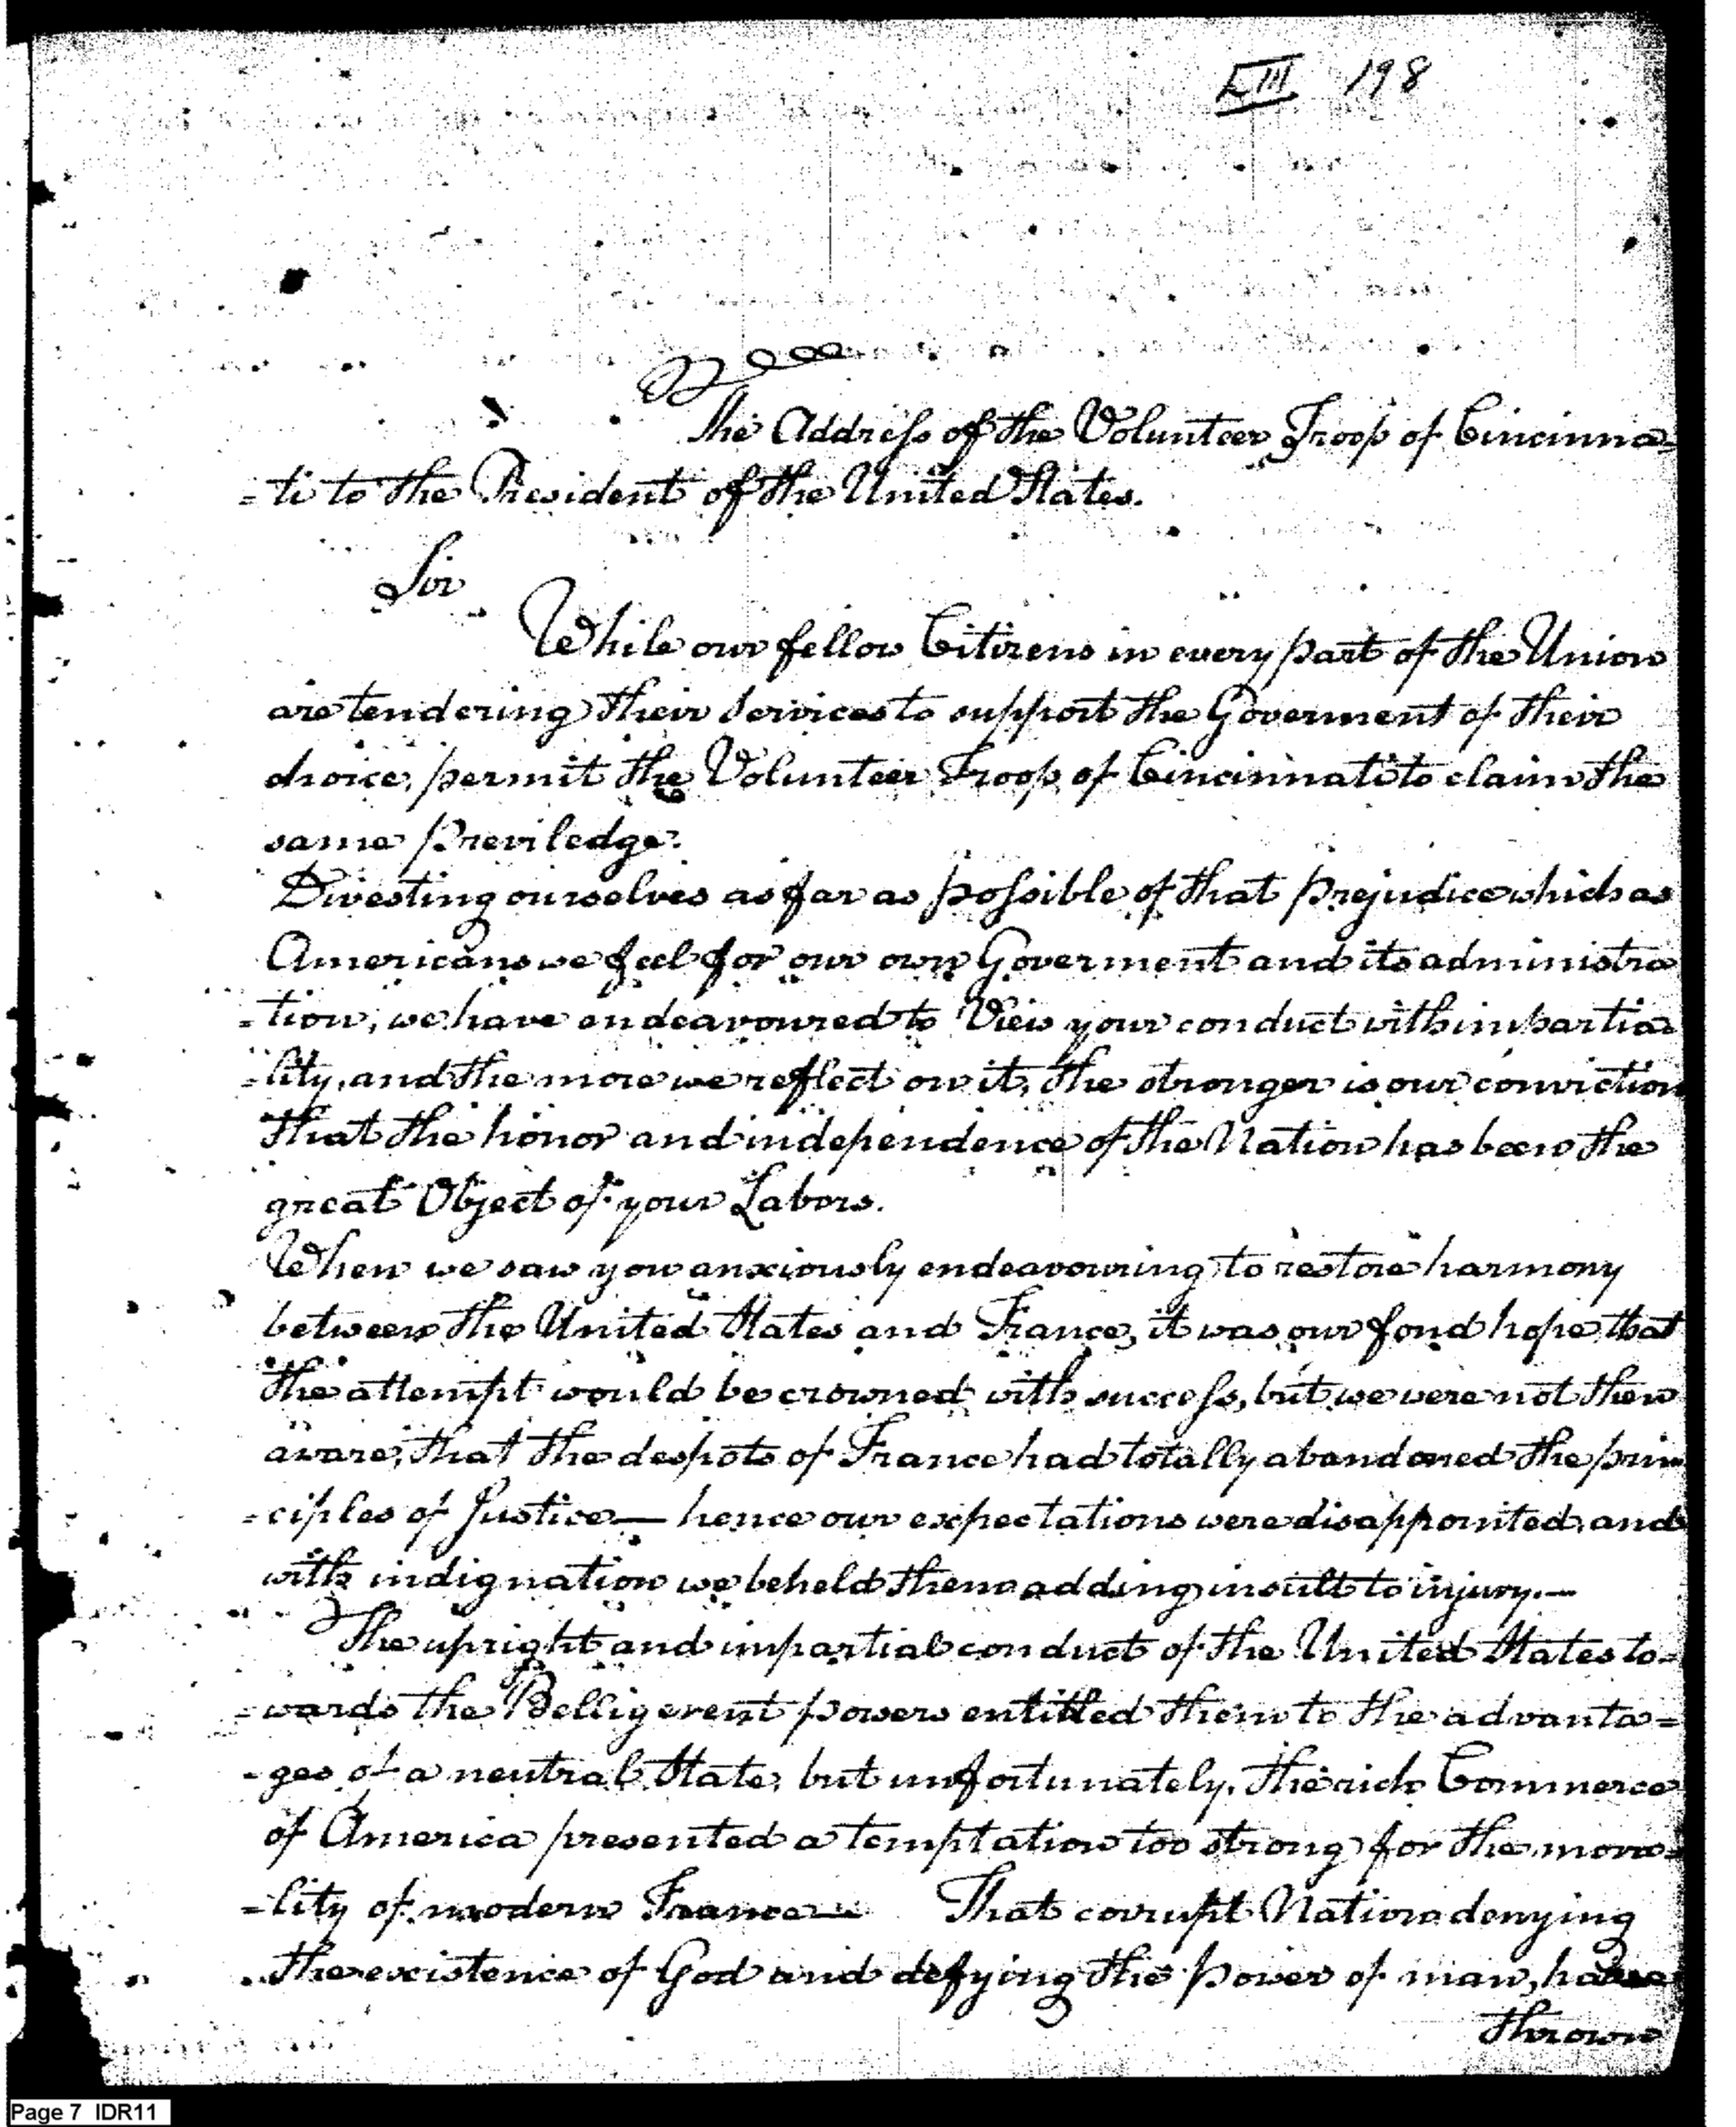 LIII 198
The Address of the Volunteer Troop of Cincinna=
=ti to the President of the United States.
Sir
While our fellow Citizens in every part of the Union
are tendering their services to support the Goverment of their
choice, permit the Volunteer Troop of Cincinnati to claim the
same Previledge.
Divesting ourselves as far as possible of that prejudice which as
Americans we feel for our own Goverment and its administra
=tion, we have endeavoured to View your conduct with impartia
=lity, and the more we reflect on it, the stronger is our conviction
that the honor and independence of the Nation has been the
great Object of your Labors.
When we saw you anxiously endeavouring to restore harmony
between the United States and France, it was our fond hope that
the attempt would be crowned with success, but we were not then
aware, that the despots of France had totally abandoned the prin
=ciples of Justice — hence our expectations were disappointed, and
with indignation we beheld them adding insult to injury. —
The upright and impartial conduct of the United States to=
=wards the Belligerent powers entitled them to the advanta=
=ges of a neutral State, but unfortunately, the rich Commerce
of America presented a temptation too strong for the mora=
=lity of modern France — That corrupt Nation denying
the existence of God and defying the power of man,
thrown
Page 7 IDR11